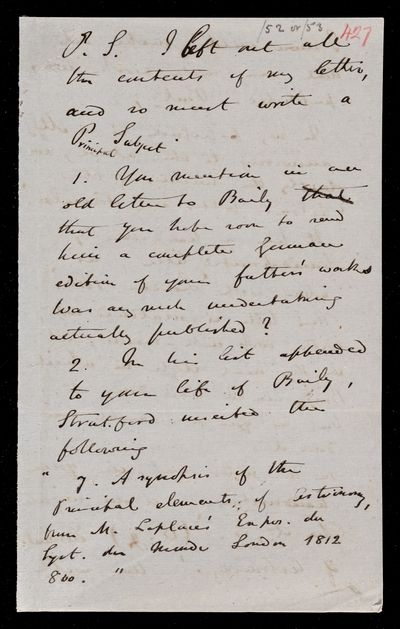 /52 or /53 427
P. S. I left out all
the contents of my letter,
and so must write a
Principal Subject
1. You mention in an
old letter to Baily that
that you hope soon to send
him a complete German
edition of your father's works
Was any such undertaking
actually published?
2. In his list appended
to your life of Baily,
Stratford inserted the
following
" 7. A synopsis of the
Principal elements of Astronomy,
from M. Laplace's Expos. du
Syst. du Monde London 1812
8vo. "